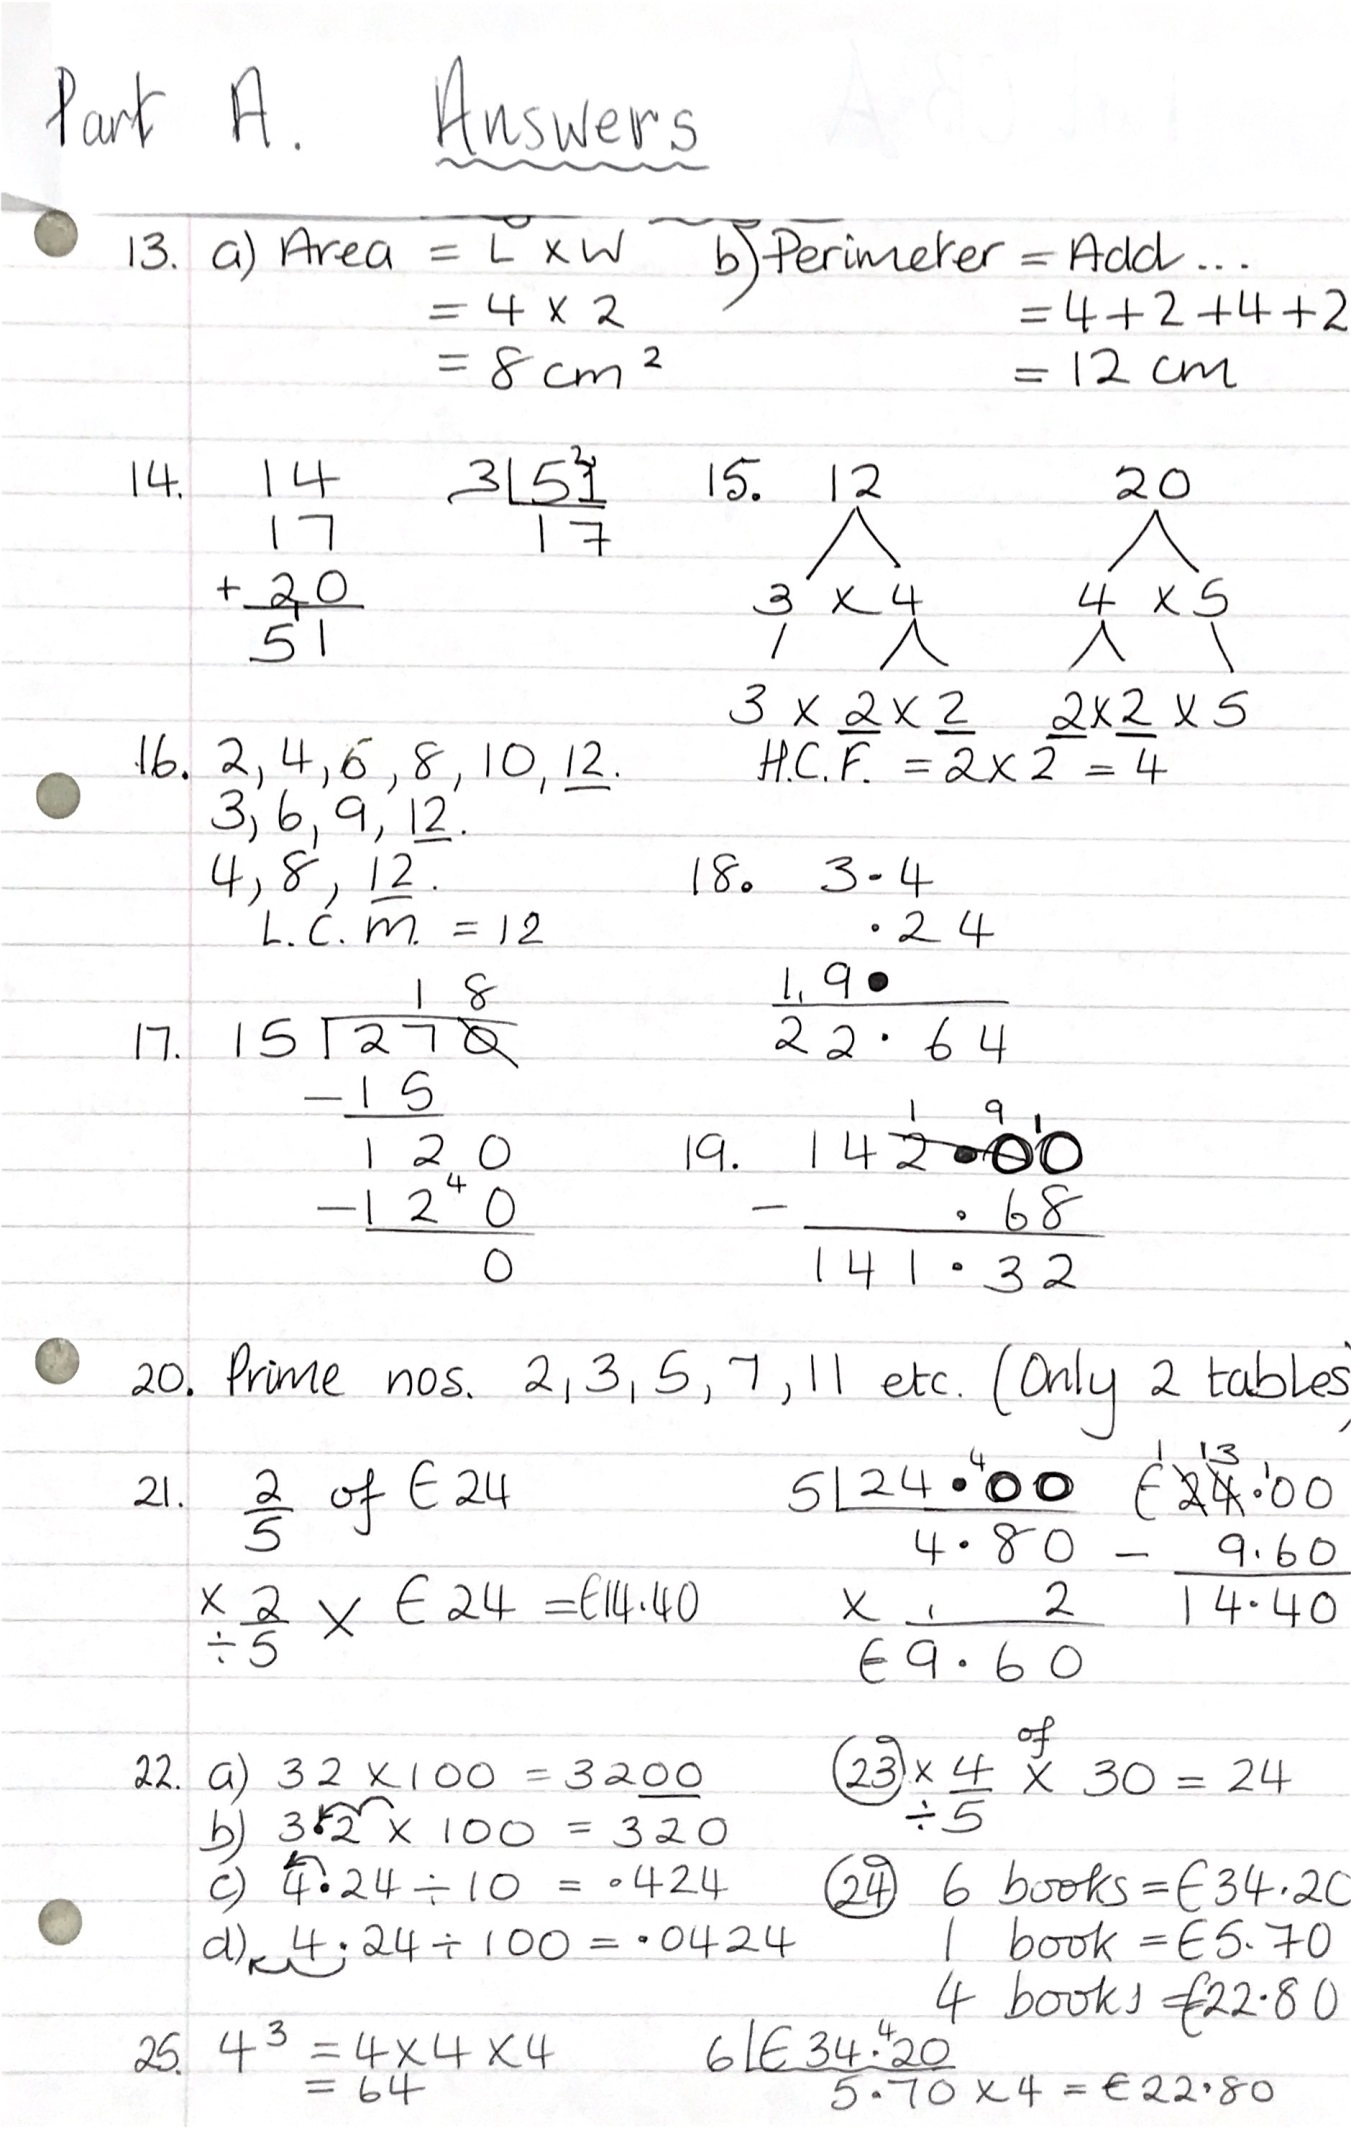 Part A. Answers
13. a) Area = L x W
= 4 x 2
= 8 cm²
b) Perimeter = Add...
= 4 + 2 + 4 + 2
= 12 cm
14. 14
17
+ 20
1
51
3 51
2
17
15. 12
3 x 4
3 x 2 x 2
20
4 x 5
2 x 2 x 5
H.C.F. = 2 x 2 = 4
16. 2, 4, 6, 8, 10, 12.
3, 6, 9, 12.
4, 8, 12.
L.C.M. = 12
18
17. 15 270
- 15
120
4
- 120
0
18. 3.4
.24
19.
1
22.64
1 9 1
19. 142.00
- .68
141.32
20. Prime nos. 2, 3, 5, 7, 11 etc. (Only 2 tables)
21. 2/5 of €24
x 2 ÷ 5 x €24 = €14.40
4
5 24.00
4.80
x 2
1
€9.60
1 13 1
€24.00
- 9.60
14.40
22. a) 32 x 100 = 3200
b) 3.2 x 100 = 320
c) 4.24 ÷ 10 = .424
d) 4.24 ÷ 100 = .0424
of
23 x 4 ÷ 5 x 30 = 24
24 6 books = €34.20
1 book = €5.70
4 books = €22.80
25. 4³ = 4 x 4 x 4
= 64
4
6 €34.20
5.70 x 4 = €22.80